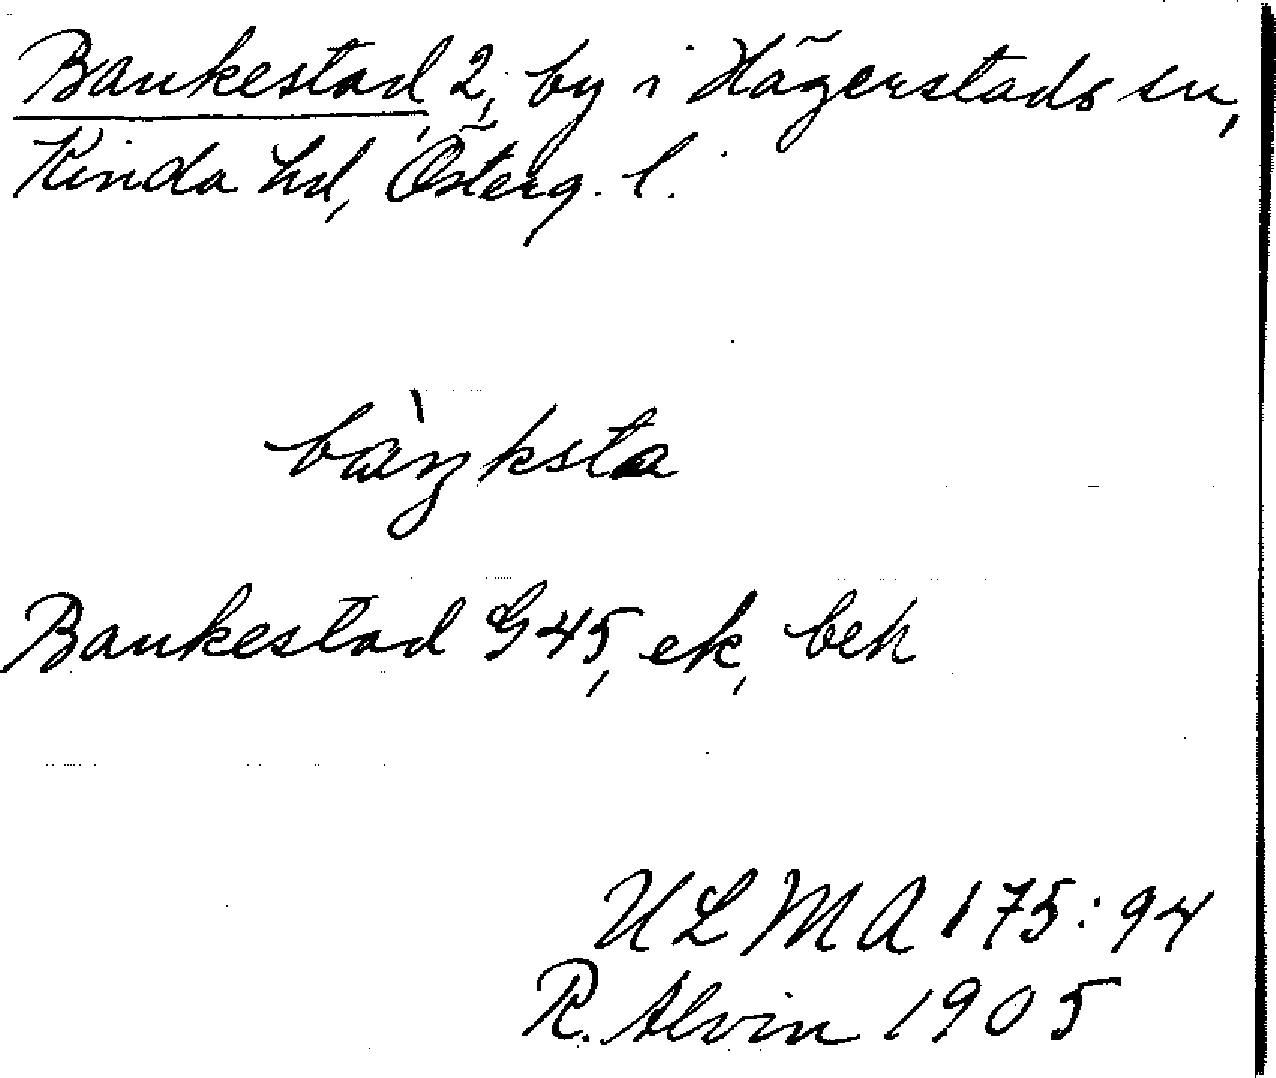 Bankestad 2, by i Hägerstads sn,
Kinda hd, Österg. l.
bàŋksta
Bankestad G45, ek, bek
ULMA 175:94
R. Alvin 1905